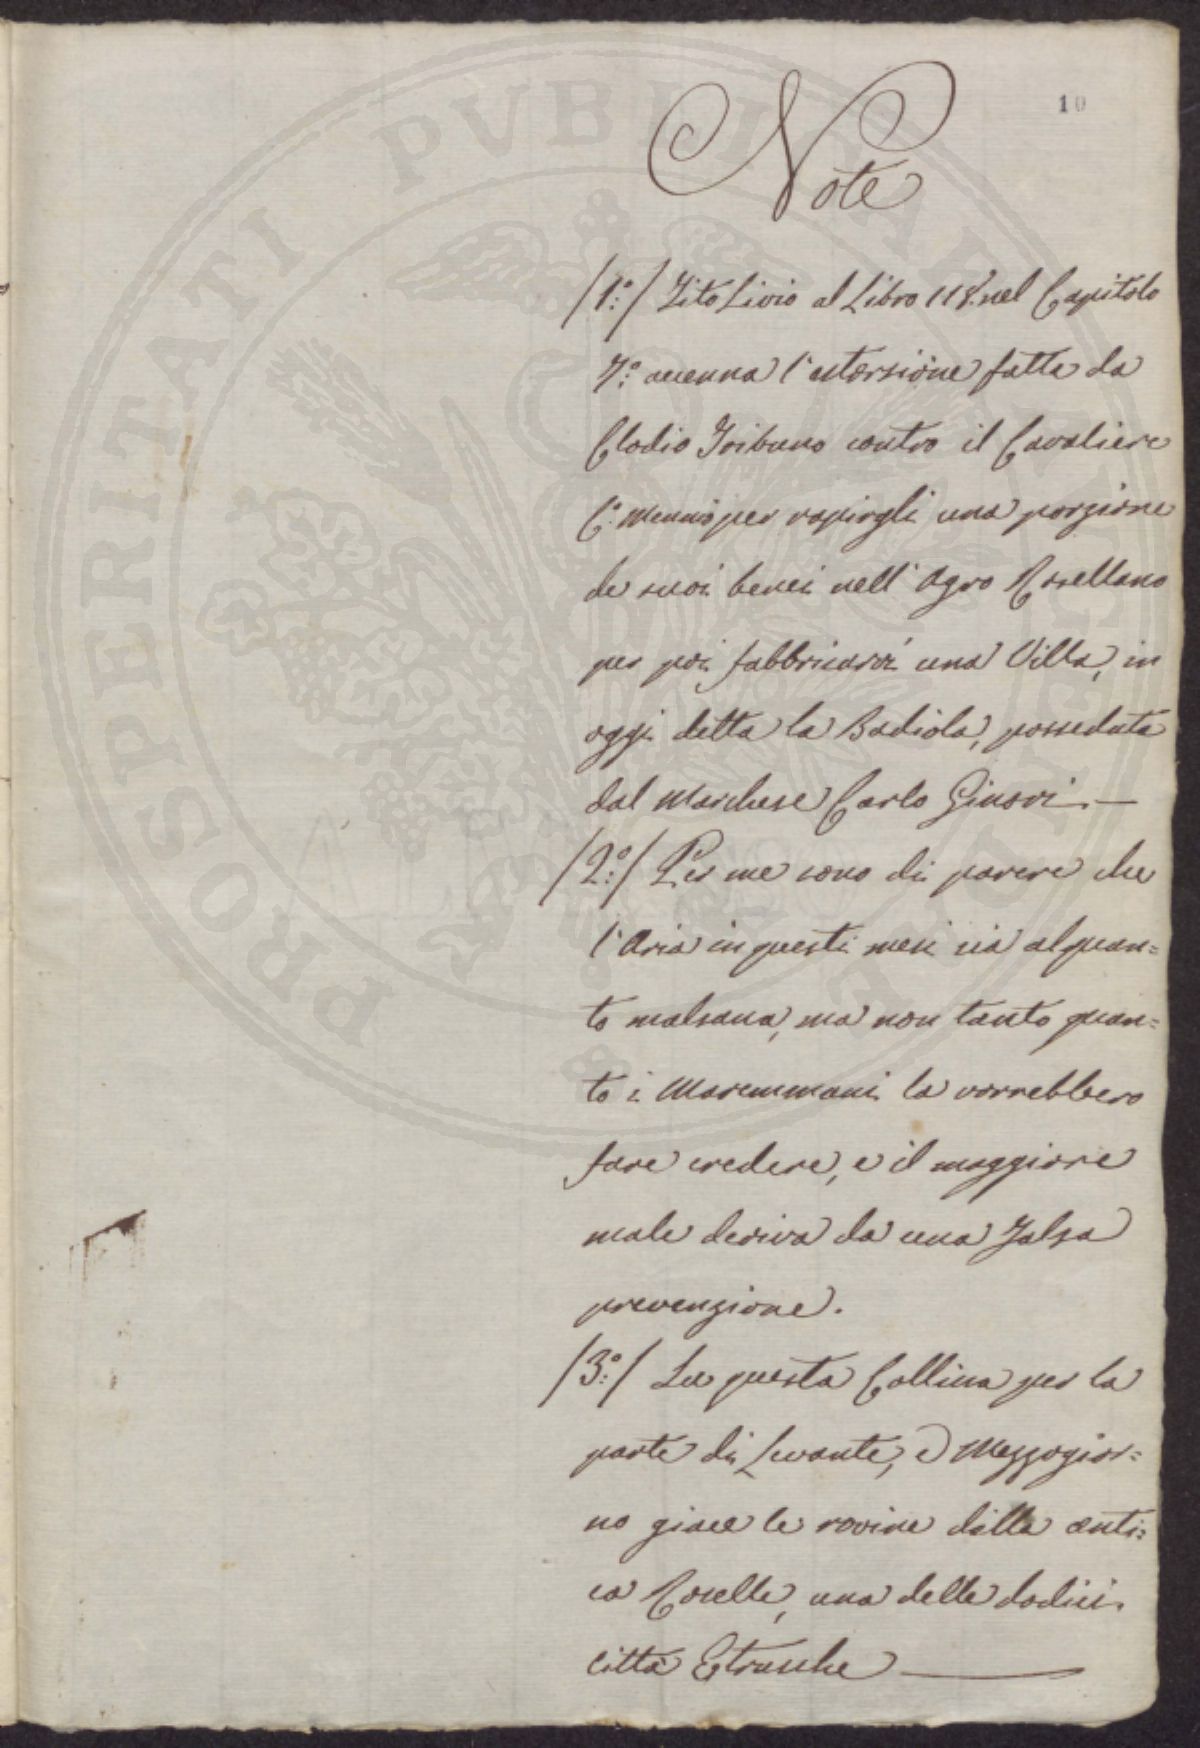 10
Note
/1.º/ Tito Livio al Libro 118. nel Capitolo
7.º accenna l'estorsione fatta da
Clodio Tribuno contro il Cavaliere
C. per rapirgli una porzione
de suoi beni nell'Agro Rosellano
per poi fabbricarvi una Villa, in
oggi detta la Badiola, posseduta
dal Marchese Carlo Ginori. —
/2.º/ Per me sono di parere che
l'Aria in questi mesi sia alquan=
to malsana, ma non tanto quan=
to i Maremmani la vorrebbero
fare credere, e il maggiore
male deriva da una falsa
prevenzione.
/3.º/ Su questa Collina per la
parte di Levante, e Mezzogior=
no giace le rovine della anti=
ca Roselle, una delle dodici
città Etrusche —
PROSPERITATI PVBLICAE AVGENDAE